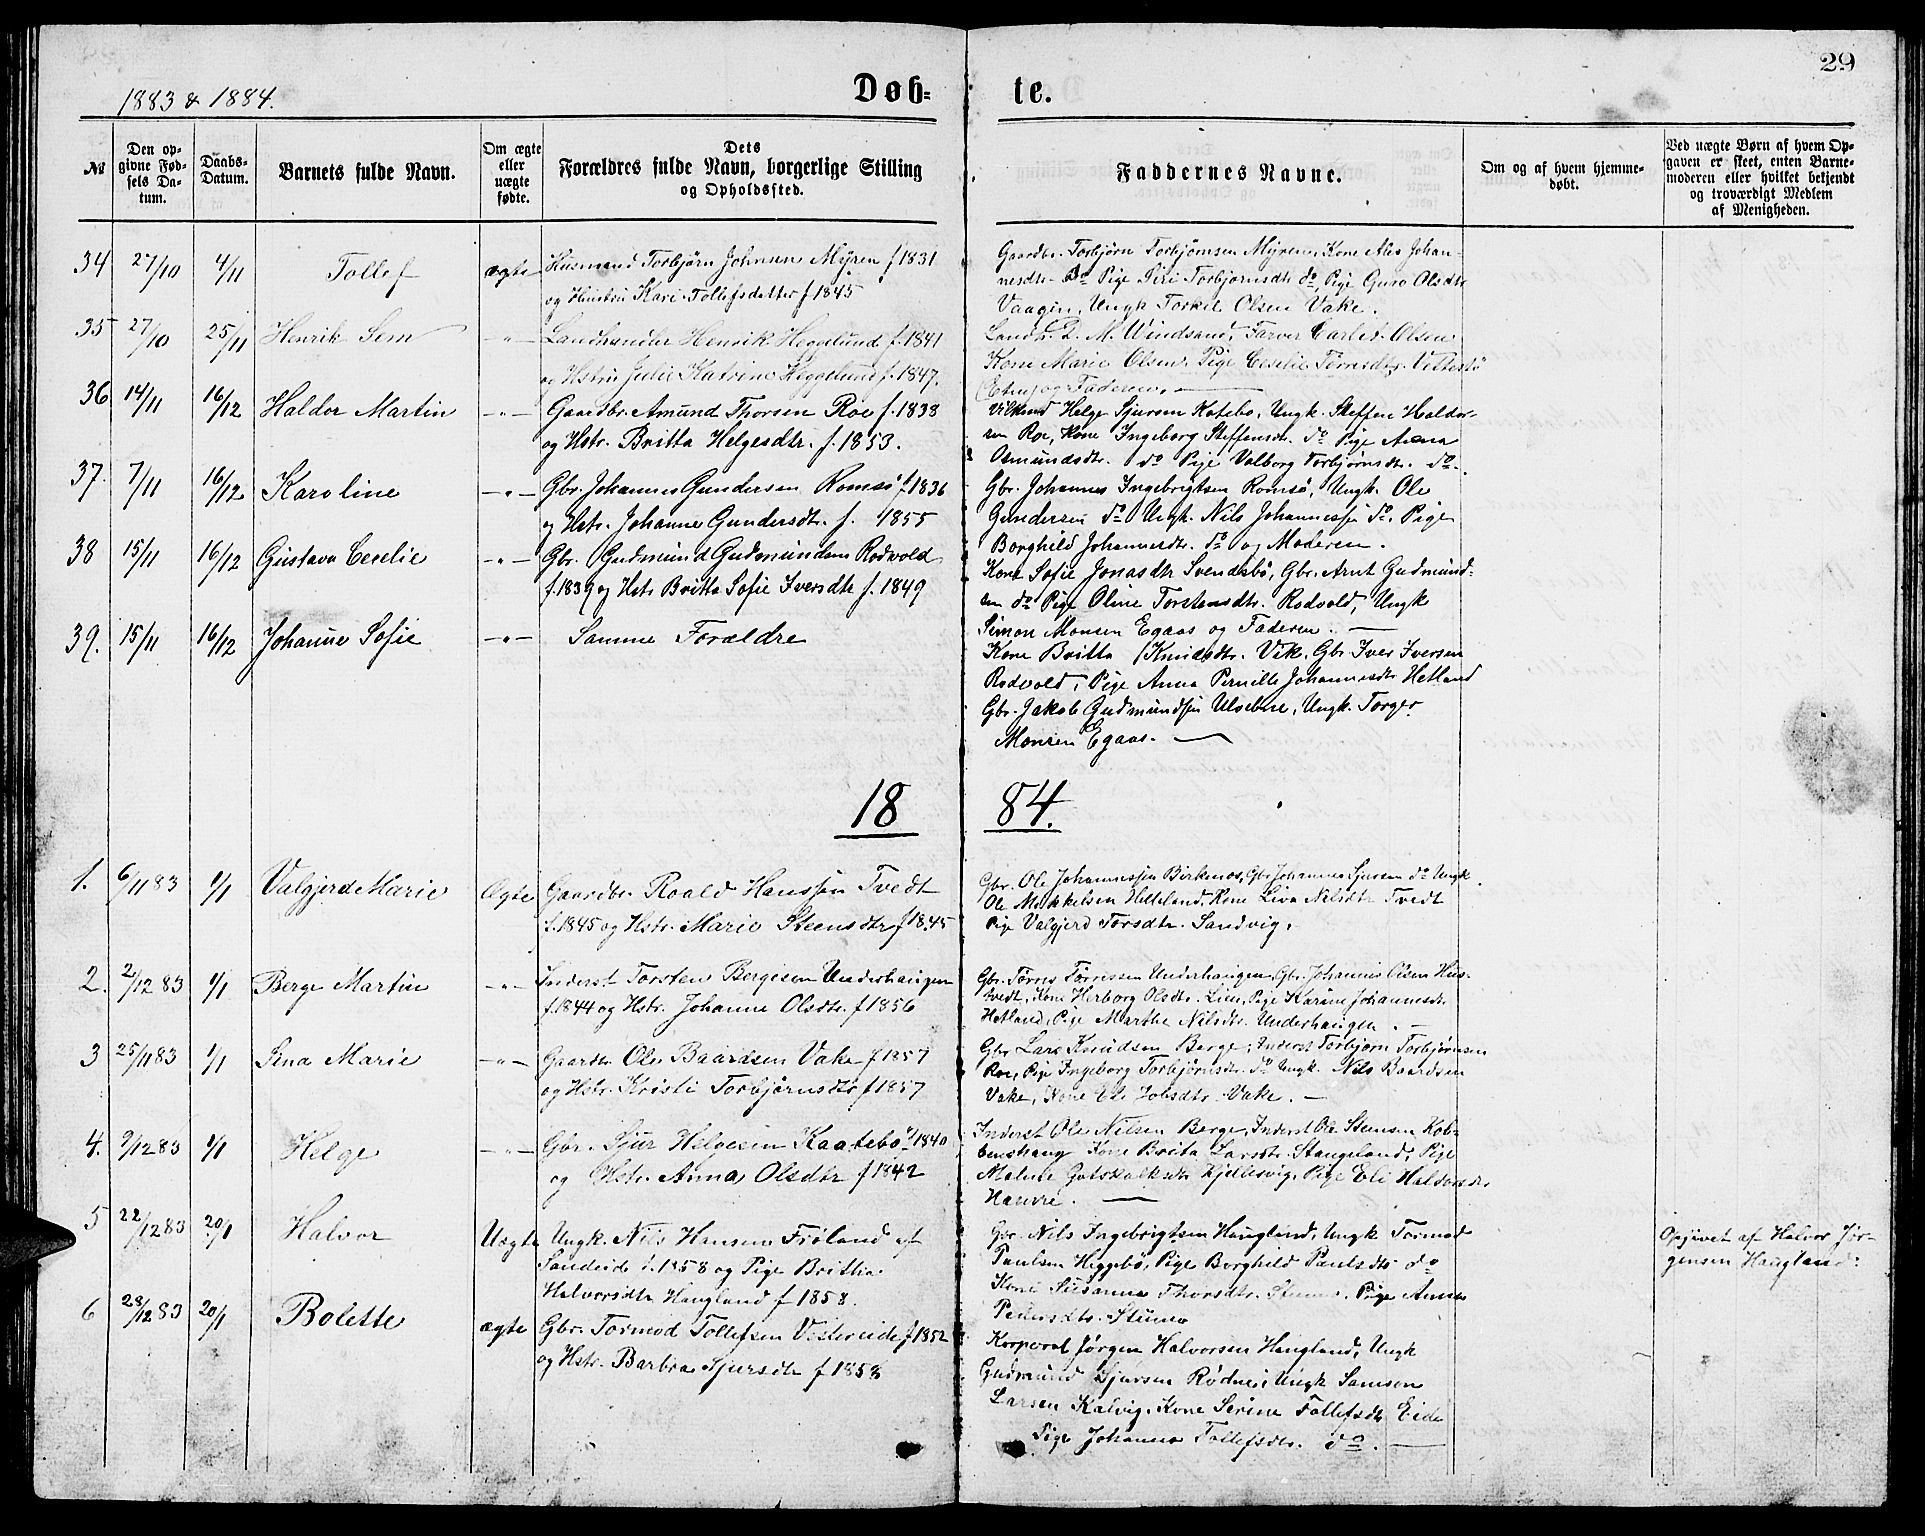 29
1883 & 1884.
Døb-
te.
№
Den op-
givne Fød-
sels Da-
tum.
Daabs-
Datum.
Barnets fulde Navn.
Om ægte
eller
uægte
fødte.
Dets
Forældres fulde Navn, borgerlige Stilling
og Opholdssted.
Faddernes Navne.
Om og af hvem hjemme-
døbt.
Ved uægte Børn af hvem Op-
gaven er skeet, enten Barne-
moderen eller hvilket bekjendt
og troværdigt Medlem
af Menigheden.
34 27/10 4/11 Tollef ægte Husmand Torbjørn Johnsen Myren f 1831
og Hustru Kari Tollefsdatter f 1845
Gaardbr. Torbjørn Torbjørnsen Myren, Kone Johan-
nesdtr. Do Pige Siri Torbjørnsdtr do, Pige Guro Olsdtr
Vaagen, Ungk Torkel Olsen Vake.
35 27/10 25/11 Henrik Sem -"- Landhandler Henrik Heggelund f. 1841
og Hstru Julie Katrine Heggelund f. 1847.
Landh. L. M. Windsand, Farver Olsen
Kone Marie Olsen, Pige Ceselie Tørresdtr.
(Etne) og Faderen.
36 14/11 16/12 Haldor Martin -"- Gaardbr. Amund Thorsen Roe f. 1838
og Hstr. Britta Helgesdtr. f. 1853.
Helge Sjursen Katebo, Ungk. Steffen Haldor-
sen Roe, Kone Ingeborg Steffensdtr. do Pige Anna
Osmundsdtr. do Pige Valborg Torbjørnsdtr. do.
37. 7/11 16/12 Karoline -"- Gbr. Johannes Gundersen Romsø f 1836
og Hstr. Johanne Gundersdtr. f. 1855
Gbr. Johannes Ingebrigtsen Romsø, Ungk. Ole
Gundersen do Ungk. Nils Johannessen do. Pige
Borghild Johannesdtr. do og Moderen.
38 15/11 16/12 Gustava Ceselie -"- Gbr. Gudmund Gudmundsen Rodvold
f. 1839 og Hstr Britta Sofie Iversdtr f. 1849
Kone Sofie Jonasdtr Svendsbø, Gbr. Arnt Gudmund-
sen do Pige Oline Torstensdtr. Rodvold, Ungk
Simon Monsen Egaas og Faderen.
39. 15/11 16/12 Johanne Sofie -"- Samme Forældre
Kone Britta Knudsdtr. Vik, Gbr Iver Iversen
Rodvold, Pige Anna Pernille Johannesdtr Hetland
Gbr. Jakob Gudmundsen Ulvebne, Ungk. Torger
Monsen Egaas.
18 84.
1. 6/11 83 1/1 Valgjerd Marie Ægte Gaardbr. Roald Hanssen Tvedt
f. 1845 og Hstr. Marie Steensdtr f 1845
Gbr. Ole Johannessen Birkenes, Gbr Johannes Sjursen do Ungk
Ole Mikkelsen Helleland, Kone Liva Nilsdtr Tvedt
Pige Valgjerd Torsdtr. Sandvig.
2. 2/12 83 1/1 Berge Martin -"- Inderst Torsten Bergesen Underhaugen
f. 1844 og Hstr. Johanne Olsdtr. f 1856
Gbr. Tørres Tørressen Underhaugen, Gbr. Johannes Olsen Hus-
tvedt, Kone Herborg Olsdtr. Lien, Pige Karine Johannesdtr
Hetland, Pige Marthe Nilsdtr. Underhaugen.
3 25/11 83 1/1 Sina Marie -"- Gaardbr Ole Baardsen Vake f 1857
og Hstr. Kristi Torbjørnsdtr f 1857
Gbr Lars Knudsen Berge, Inderst Torbjørn Torbjørnsen
Roe, Pige Ingeborg Torbjørnsdtr. do Ungk. Nils Baardsen
Vake, Kone Jobsdtr. Vake.
4. 9/12 83 1/1 Helge -"- Gbr. Sjur Helgesen Kaatebø f 1840
og Hstr. Anna Olsdtr f 1842
Inderst Ole Nilsen Berge, Inderst Ole Stensen Køb-
Kone Brita Larsdtr. Stangeland, Pige
Malene Gotskalksdtr Kjellesvig, Pige Eli Haldorsdtr
5 22/12 83 20/1 Halvor Uægte Ungk. Nils Hansen Frøland af
Sandeid f. 1858 og Pige Britha
Halvorsdtr Haugland f 1858.
Gbr. Nils Ingebrigtsen Haugland, Ungk Tormod
Paulsen Heggebø, Pige Borghild Paulsdtr do
Kone Susanna Thorsdtr. Stumo, Pige Anna
Pedersdtr. Stumo
Opgivet af Halvor Jør-
gensen Haugland:
6 28/12 83 20/1 Bolette ægte Gbr. Tormod Tollefsen Vestereide f 1852
og Hstr. Barbra Sjursdtr f 1858
Korporal Jørgen Halvorsen Haugland, Ungk
Gudmund Sjursen Rødne, Ungk Samson
Larsen Kalvig, Kone Serine Tollefsdtr Eide
Pige Johanna Tollefsdtr. do.